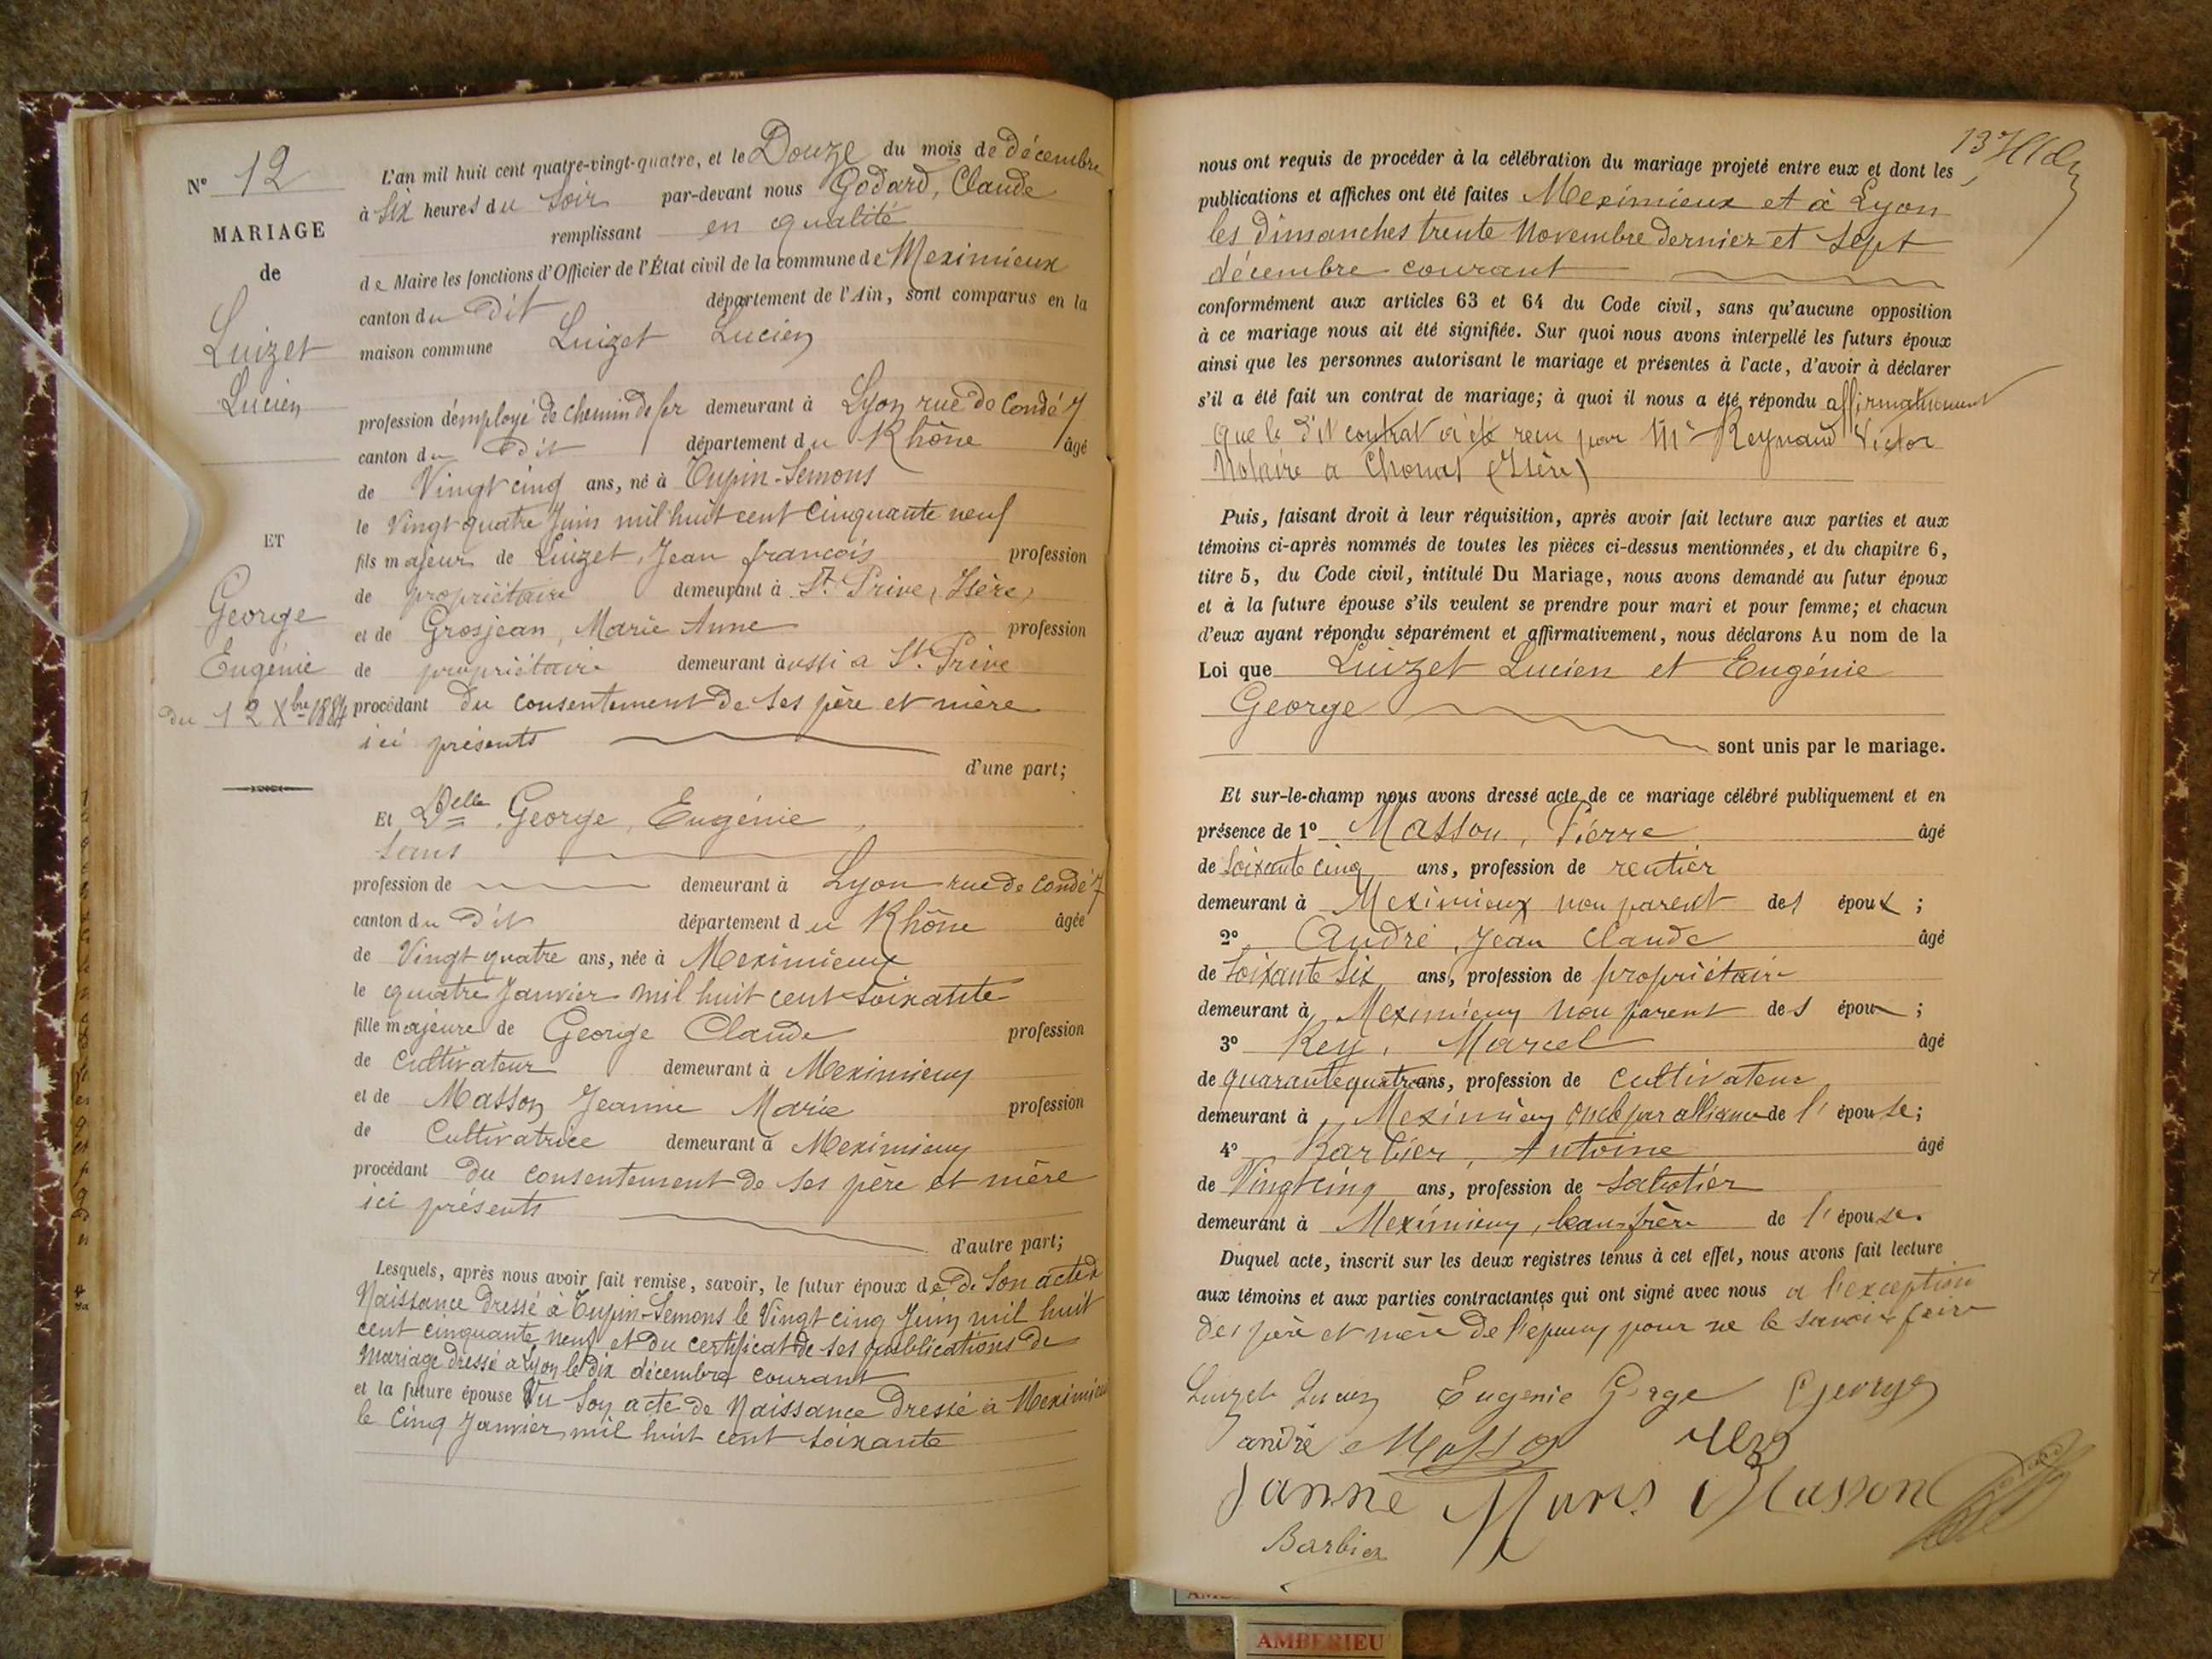 N° 12
MARIAGE
de
Luizet
Lucien
ET
George
Eugénie
du 12 Xbre 1884
L'an mil huit cent quatre-vingt-quatre, et le Douze du mois de décembre
à six heures du soir par-devant nous Godard, Claude
remplissant en qualité
de Maire les fonctions d'Officier de l'État civil de la commune de Meximieux
canton du dit département de l'Ain, sont comparus en la
maison commune Luizet Lucien
profession d'employé de chemin de fer demeurant à Lyon rue de Condé 7
canton du dit département du Rhône âgé
de Vingt cinq ans, né à Tupin-Semons
le Vingt quatre Juin mil huit cent cinquante neuf
fils majeur de Luizet, Jean françois profession
de propriétaire demeurant à St Prive (Isère)
et de Grosjean, Marie Anne profession
de propriétaire demeurant aussi a St Prive
procédant du consentement de ses père et mère
ici présents
d'une part;
Et Delle George, Eugénie
sans
profession de demeurant à Lyon rue de Condé 7
canton du dit département du Rhône âgée
de Vingt quatre ans, née à Meximieux
le quatre Janvier mil huit cent soixante
fille majeure de George Claude profession
de cultivateur demeurant à Meximieux
et de Masson Jeanne Marie profession
de Cultivatrice demeurant à Meximieux
procédant du consentement de ses père et mère
ici présents
d'autre part;
Lesquels, après nous avoir fait remise, savoir, le futur époux de de son acte de
Naissance dressé à Tupin-Semons le Vingt cinq Juin mil huit
cent cinquante neuf et du certificat de ses publications de
mariage dressé à Lyon le dix décembre courant
et la future épouse Vu son acte de Naissance dressé à Meximieux
le Cinq Janvier mil huit cent soixante
13
nous ont requis de procéder à la célébration du mariage projeté entre eux et dont les
publications et affiches ont été faites Meximieux et à Lyon
les dimanches trente Novembre dernier et sept
décembre courant
conformément aux articles 63 et 64 du Code civil, sans qu'aucune opposition
à ce mariage nous ait été signifiée. Sur quoi nous avons interpellé les futurs époux
ainsi que les personnes autorisant le mariage et présentes à l'acte, d'avoir à déclarer
s'il a été fait un contrat de mariage; à quoi il nous a été répondu affirmativement
que le dit contrat a été reçu par Me Reynaud Victor
Notaire a Chonas (Isère)
Puis, faisant droit à leur réquisition, après avoir fait lecture aux parties et aux
témoins ci-après nommés de toutes les pièces ci-dessus mentionnées, et du chapitre 6,
titre 5, du Code civil, intitulé Du Mariage, nous avons demandé au futur époux
et à la future épouse s'ils veulent se prendre pour mari et pour femme; et chacun
d'eux ayant répondu séparément et affirmativement, nous déclarons Au nom de la
Loi que Luizet Lucien et Eugénie
George
sont unis par le mariage.
Et sur-le-champ nous avons dressé acte de ce mariage célébré publiquement et en
présence de 1° Masson, Pierre âgé
de soixante cinq ans, profession de rentier
demeurant à Meximieux non parent des époux;
2° André, Jean Claude âgé
de soixante six ans, profession de propriétaire
demeurant à Meximieux non parent des époux;
3° Rey, Marcel âgé
de quarante quatre ans, profession de cultivateur
demeurant à Meximieux oncle par alliance de l'épouse;
4° Barbier, Antoine âgé
de Vingt cinq ans, profession de sabotier
demeurant à Meximieux, beau frère de l'épouse.
Duquel acte, inscrit sur les deux registres tenus à cet effet, nous avons fait lecture
aux témoins et aux parties contractantes qui ont signé avec nous a l'exception
des père et mère de l'époux pour ne le savoir faire
Luizet Lucien Eugenie Gorge George
andré Masson Rey
Janne Maris Masson
Barbier
AMBERIEU